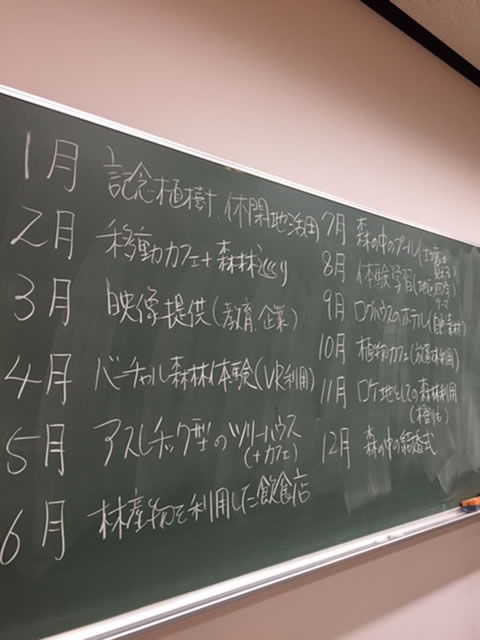 1月 記念植樹、休閑地活用
2月 移動カフェ+森林巡り
3月 映像提供(教育、企業)
4月 バーチャル森林体験(VR利用)
5月 アスレチック型のツリーハウス
(+カフェ)
6月 林産物を利用した飲食店
7月 森の中のプール
8月 体験学習
9月 ログハウスのホテル(自然素材)
10月 植物カフェ
11月 ロケ地としての森林利用
12月 森の中の結婚式